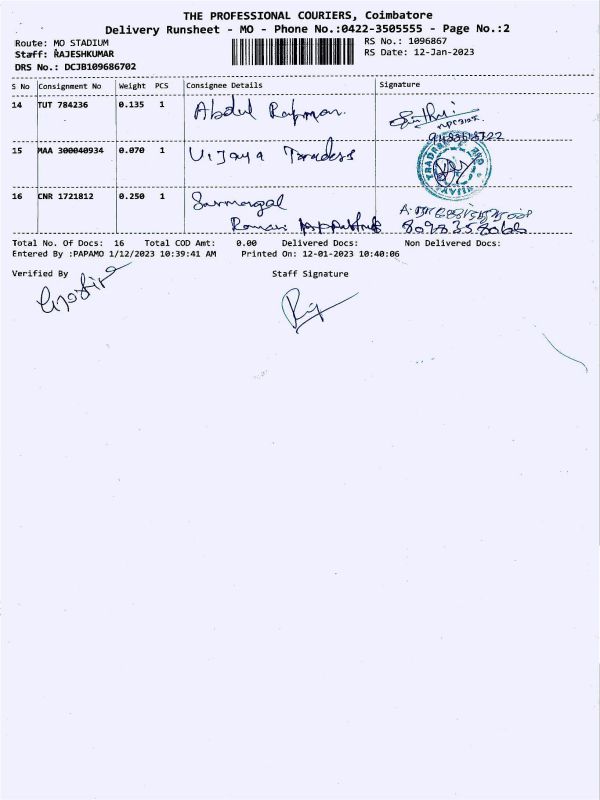 THE PROFESSIONAL COURIERS, Coimbatore
Delivery Runsheet - MO - Phone No.:0422-3505555 - Page No.:2
Route: MO STADIUM RS No.: 1096867
Staff: RAJESHKUMAR RS Date: 12-Jan-2023
DRS No.: DCJB109686702
S No Consignment No Weight PCS Consignee Details Signature
14 TUT 784236 0.135 1 Abdul Rahman
15 MAA 300040934 0.070 1 Vijaya Traders
TRADERS
VIJAYA
16 CNR 1721812 0.250 1
Total No. Of Docs: 16 Total COD Amt: 0.00 Delivered Docs: Non Delivered Docs:
Entered By :PAPAMO 1/12/2023 10:39:41 AM Printed On: 12-01-2023 10:40:06
Verified By Staff Signature